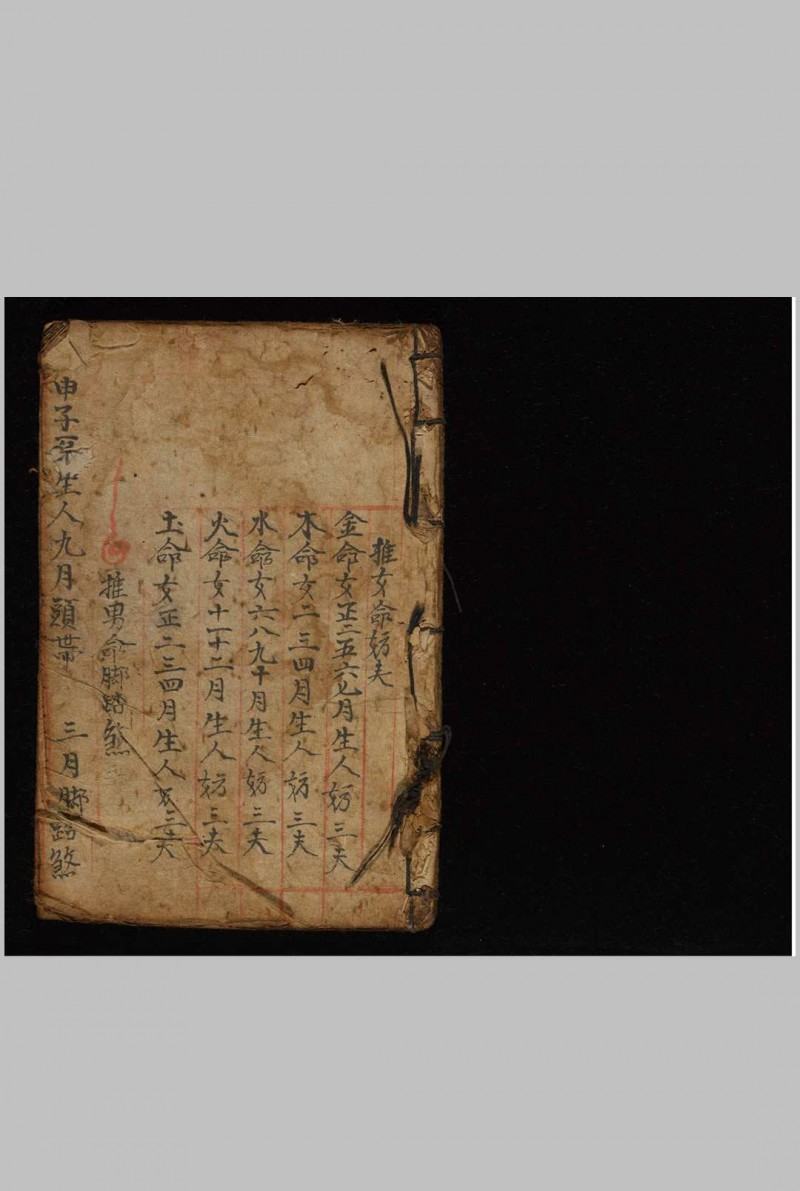 推女命妨夫
金命女正二五六七月生人妨三夫
木命女二三四月生人妨三夫
水命女六八九十月生人妨三夫
火命女十一十二月生人妨三夫
土命女正二三四月生人妨三夫
推男命脚踏煞
申子辰生人九月頭帶 三月脚踏煞